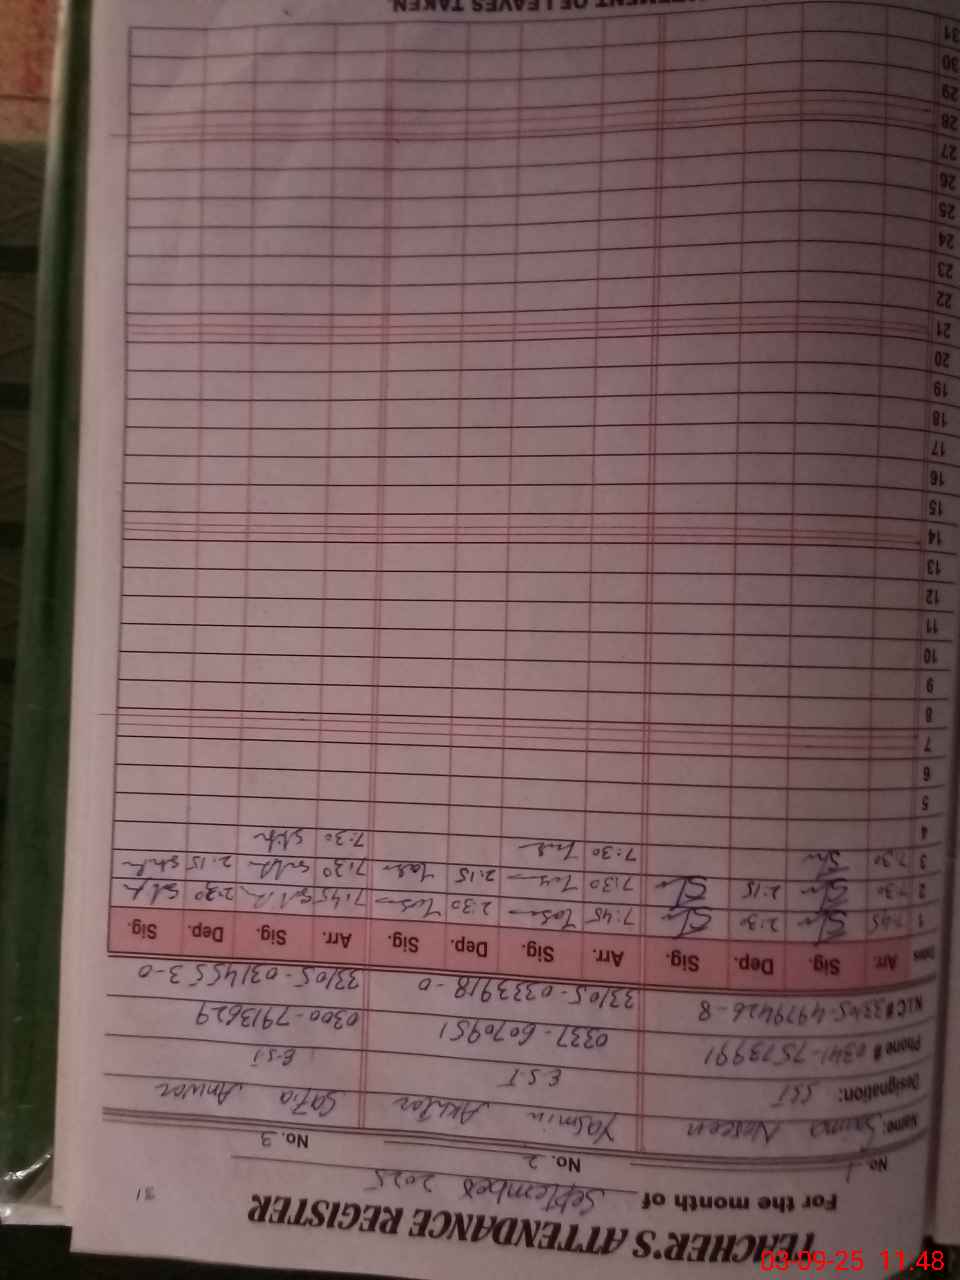 TEACHER'S ATTENDANCE REGISTER
31
For the month of September 2025
No. 1 No. 2 No. 3
Name: Saima Naseen Yasmin Akhtar Safia Anwar
Designation: SST E.S.T E.S.T
Phone # 0341-7573991 0337-6070951 0300-7913629
NIC# 33105-4979426-8 33105-0333918-0 33105-0314553-0
Dates Arr. Sig. Dep. Sig. Arr. Sig. Dep. Sig. Arr. Sig. Dep. Sig.
1 7:45 2:30 7:45 2:30 7:45 2:30
2 7:30 2:15 7:30 2:15 7:30 2:15
3 7:30 7:30 7:30
4
5
6
7
8
9
10
11
12
13
14
15
16
17
18
19
20
21
22
23
24
25
26
27
28
29
30
31
OF LEAVES TAKEN.
03-09-25 11:48